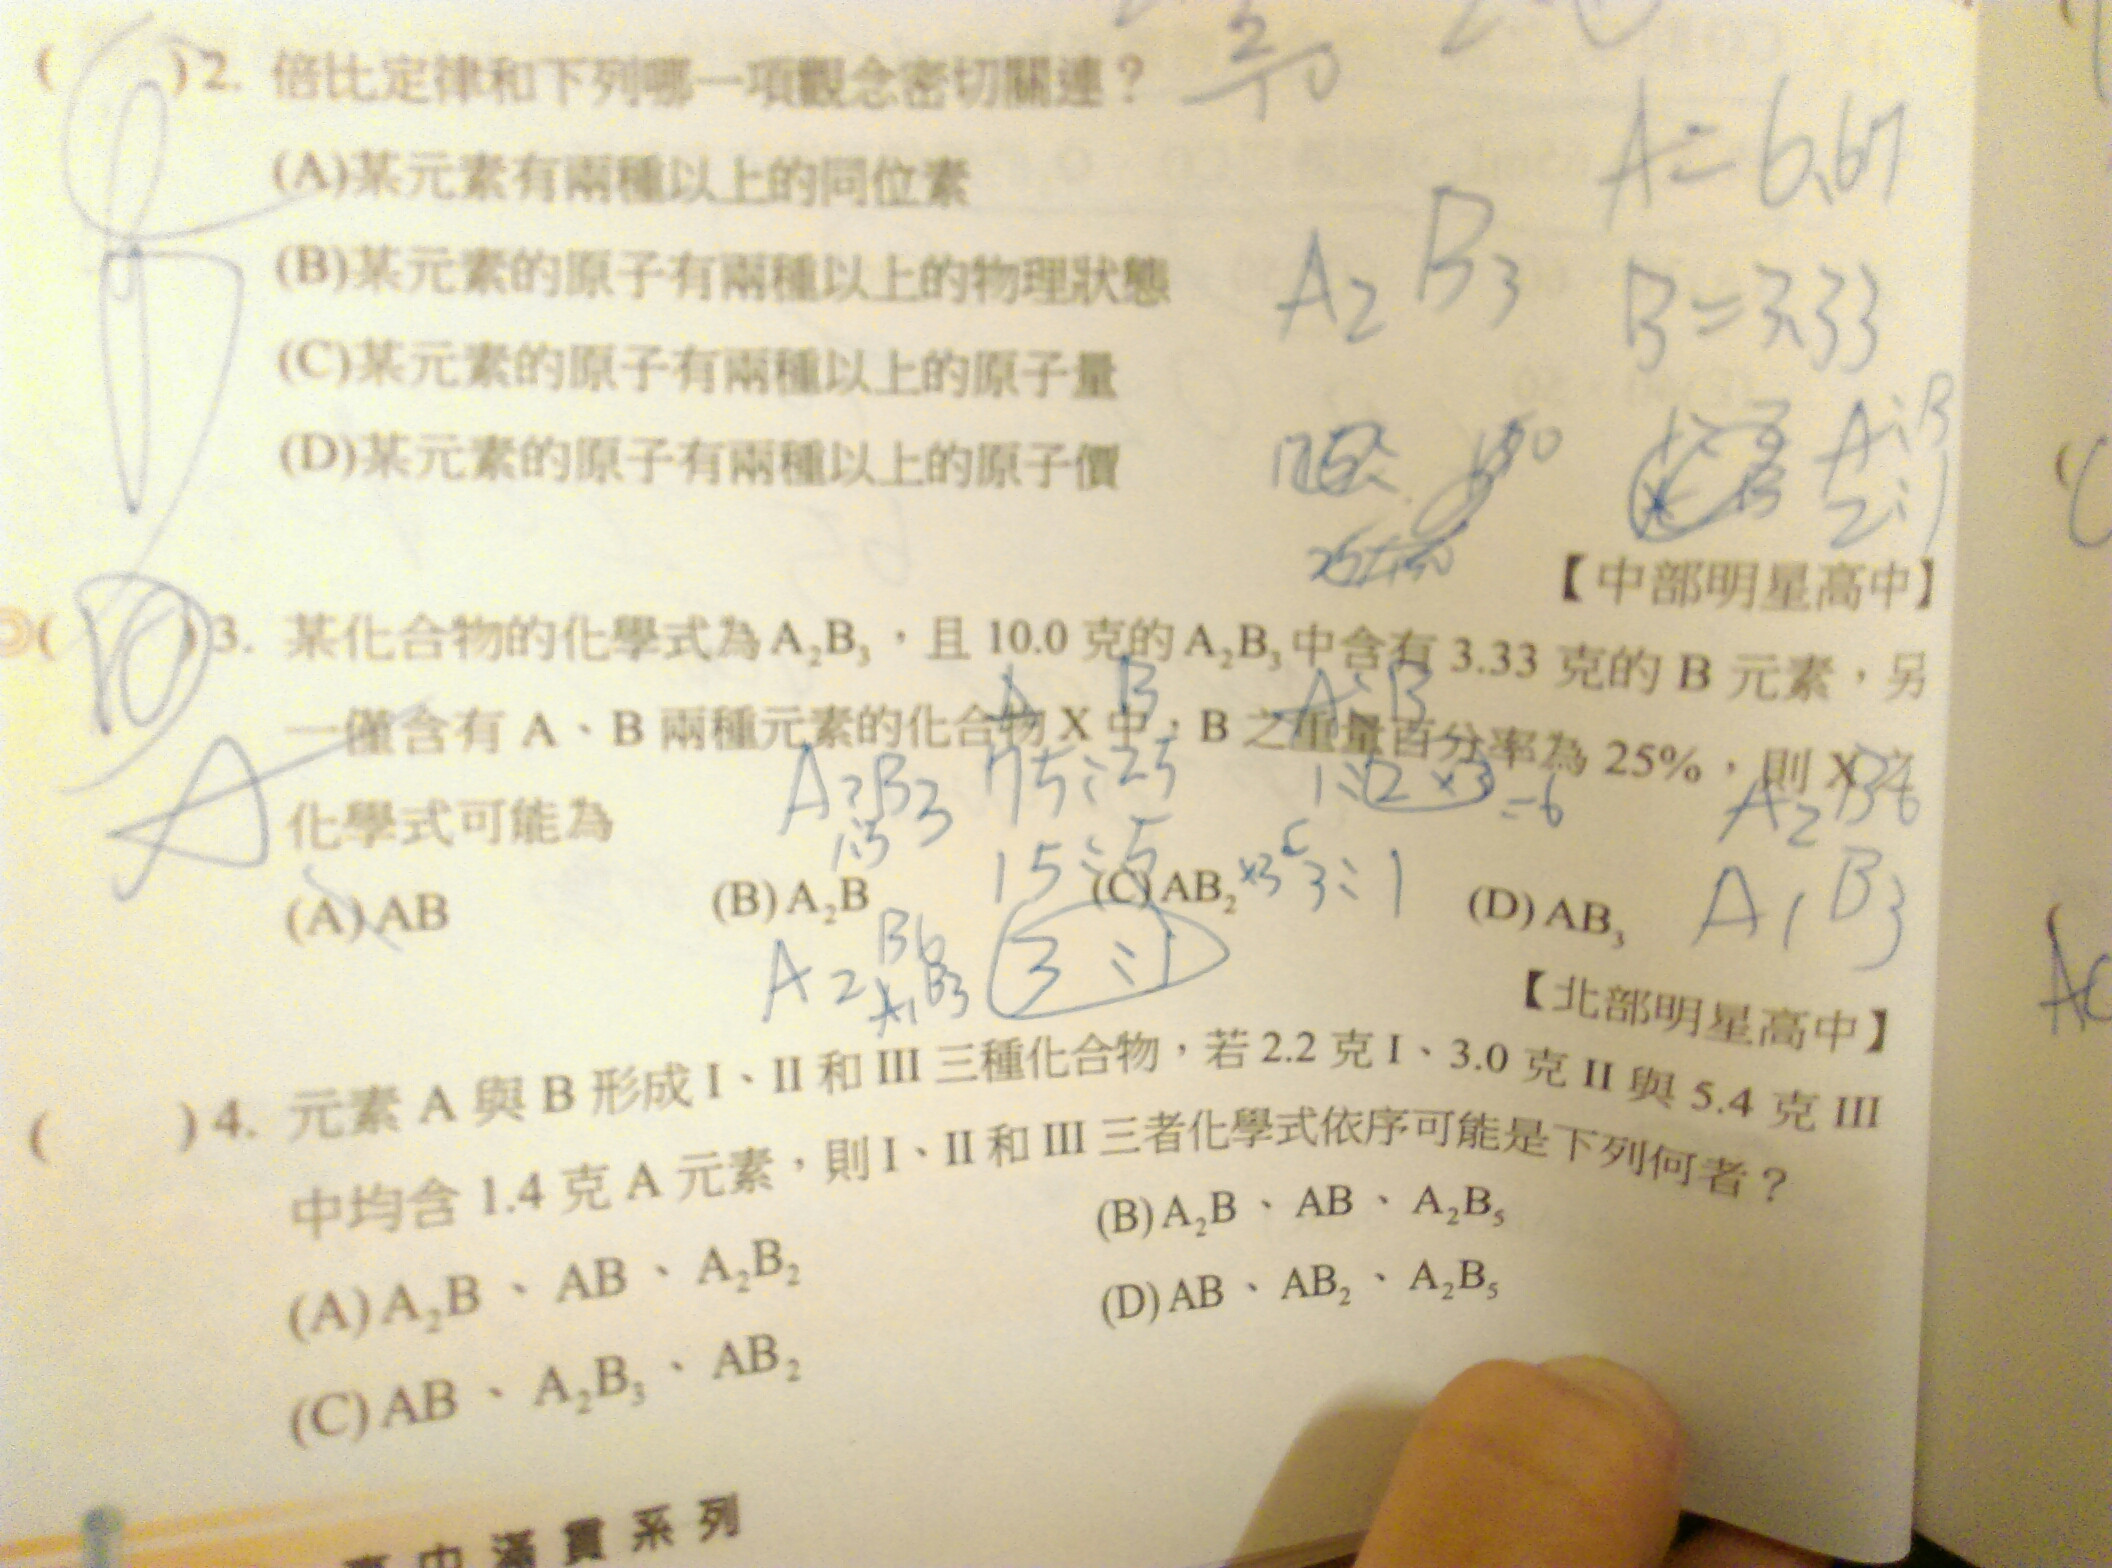 ( ) 2. 倍比定律和下列哪一項觀念密切關連？
(A)某元素有兩種以上的同位素
(B)某元素的原子有兩種以上的物理狀態
(C)某元素的原子有兩種以上的原子量
(D)某元素的原子有兩種以上的原子價
A = 6.67
A2 B3
B = 3.33
A:B
2:1
【中部明星高中】
( ) 3. 某化合物的化學式為A₂B₃，且 10.0 克的A₂B₃中含有 3.33 克的 B 元素，另
一僅含有 A、B 兩種元素的化合物 X 中，B 之重量百分率為 25%，則 X 之
化學式可能為
A B
A:B
A2B3
75:25
1:2 ×3 =6
A2 B6
15:5
×3
3:1
A1 B3
(A) AB (B) A₂B (C) AB₂ (D) AB₃
A2 B6
A1 B3
3:1
【北部明星高中】
( ) 4. 元素 A 與 B 形成 I、II 和 III 三種化合物，若 2.2 克 I、3.0 克 II 與 5.4 克 III
中均含 1.4 克 A 元素，則 I、II 和 III 三者化學式依序可能是下列何者？
(A) A₂B、AB、A₂B₂ (B) A₂B、AB、A₂B₅
(C) AB、A₂B₃、AB₂ (D) AB、AB₂、A₂B₅
高中滿貫系列